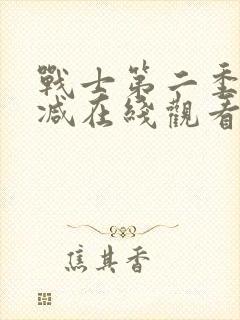 戰士第二季
減在綫觀看
焦其香